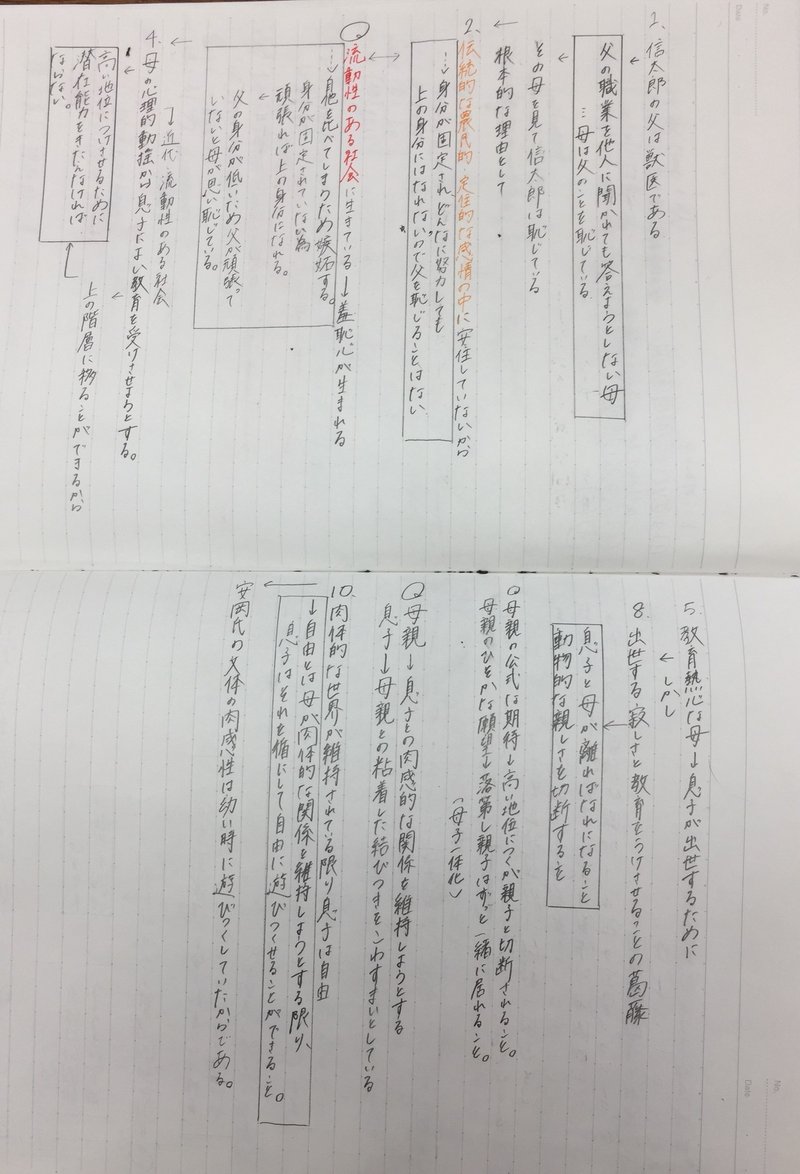 1. 信太郎の父は獣医である
父の職業を他人に聞かれても答えようとしない母
…母は父のことを恥じている
その母を見て信太郎は恥じている
根本的な理由として
2. 伝統的な農民的・定住的な感情の中に安住していないから
…→身分が固定されどんなに努力しても
上の身分にはなれないので父を恥じることはない
流動性のある社会に生きている→羞恥心が生まれる
…→自他を比べてしまうため嫉妬する。
身分が固定されていない為
頑張れば上の身分になれる。
父の身分が低いため父が頑張って
いないと母が思い恥じている。
→近代 流動性のある社会
4. 母の心理的動揺から息子によい教育を受けさせようとする。
高い地位につけさせるために
潜在能力をきたえなければ
ならない。
上の階層に移ることができるから
5. 教育熱心な母→息子が出世するために
しかし
8. 出世する寂しさと教育をうけさせることの葛藤
息子と母が離ればなれになること
動物的な親しさを切断すること
母親の公式な期待→高い地位につくが親子と切断されること。
母親のひそかな願望→落第し親子はずっと一緒に居れること。
(母子一体化)
母親→息子との肉感的な関係を維持しようとする
息子→母親との粘着した結びつきをこわすまいとしている
10. 肉体的な世界が維持されている限り息子は自由
→自由とは母が肉体的な関係を維持しようとする限り、
息子はそれを楯にして自由に遊びつくせることができること。
安岡氏の文体の肉感性は幼い時に遊びつくしていたからである。
No.
Date
No.
Date